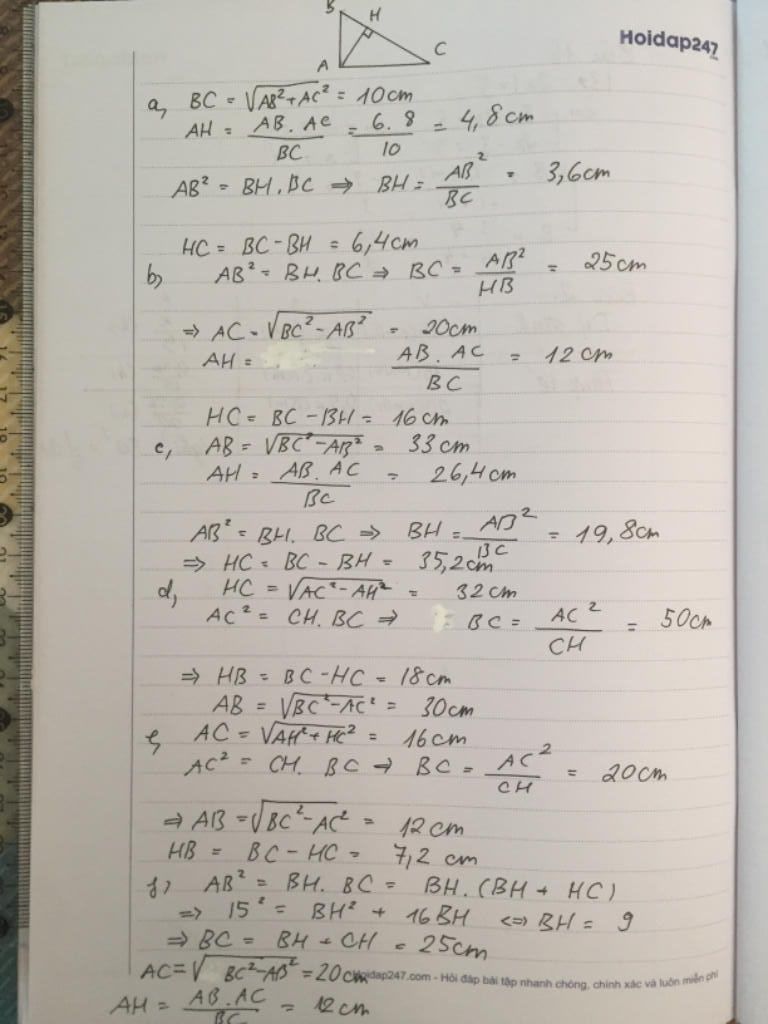 B
H
Hoidap247
A
C
a, BC = √AB²+AC² = 10cm
AH = AB.AC/BC = 6.8/10 = 4,8cm
AB² = BH.BC ⇒ BH = AB²/BC = 3,6cm
HC = BC-BH = 6,4cm
b, AB² = BH.BC ⇒ BC = AB²/HB = 25cm
⇒ AC = √BC²-AB² = 20cm
AH = AB.AC/BC = 12cm
HC = BC-BH = 16cm
c, AB = √BC²-AB² = 33cm
AH = AB.AC/BC = 26,4cm
AB² = BH.BC ⇒ BH = AB²/BC = 19,8cm
⇒ HC = BC-BH = 35,2cm
d, HC = √AC²-AH² = 32cm
AC² = CH.BC ⇒ BC = AC²/CH = 50cm
⇒ HB = BC-HC = 18cm
AB = √BC²-AC² = 30cm
e, AC = √AH²+HC² = 16cm
AC² = CH.BC ⇒ BC = AC²/CH = 20cm
⇒ AB = √BC²-AC² = 12cm
HB = BC-HC = 7,2cm
f, AB² = BH.BC = BH.(BH+HC)
⇒ 15² = BH² + 16BH ⇔ BH = 9
⇒ BC = BH+CH = 25cm
AC = √BC²-AB² = 20cm
Hoidap247.com - Hỏi đáp bài tập nhanh chóng, chính xác và luôn miễn phí
AH = AB.AC/BC = 12cm